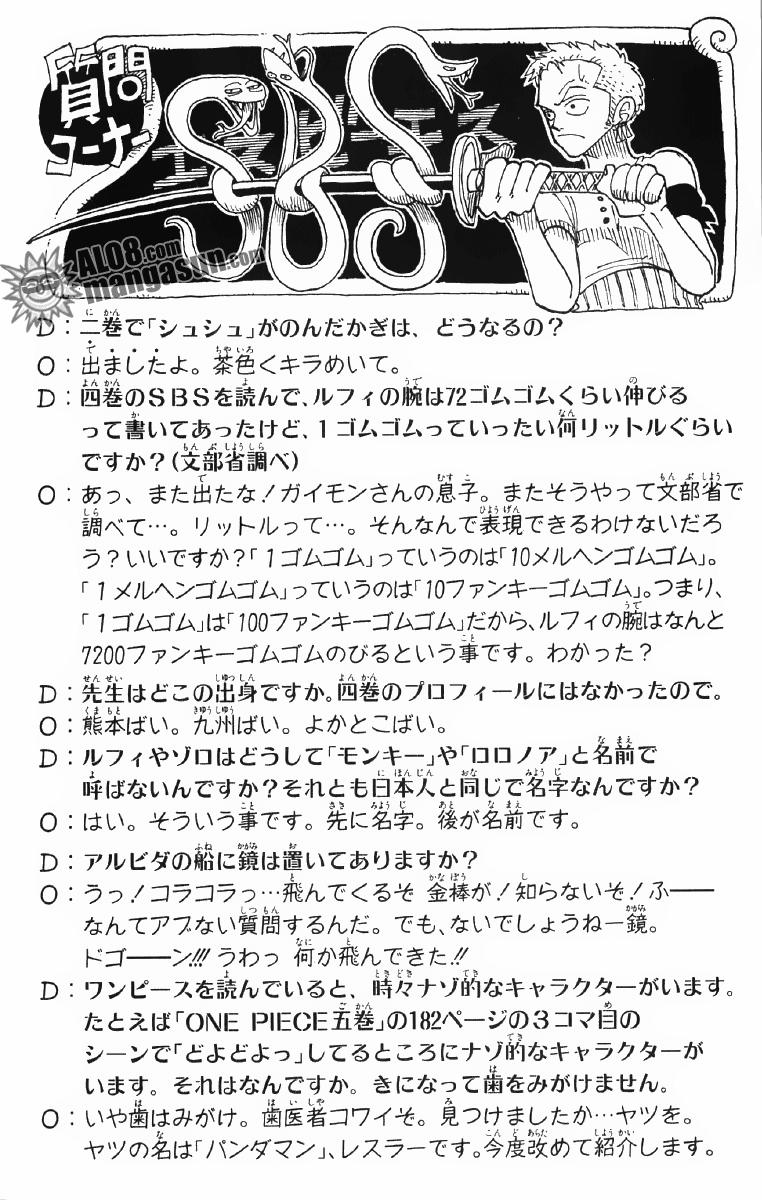 質問
コーナー
SBS
エスビーエス
AL08.com
mangasun.com
D：二巻で「シュシュ」がのんだかぎは、どうなるの？
O：出ましたよ。茶色くキラめいて。
D：四巻のSBSを読んで、ルフィの腕は72ゴムゴムくらい伸びる
って書いてあったけど、1ゴムゴムっていったい何リットルぐらい
ですか？(文部省調べ)
O：あっ、また出たな！ガイモンさんの息子。またそうやって文部省で
調べて…。リットルって…。そんなんで表現できるわけないだろ
う？いいですか？「1ゴムゴム」っていうのは「10メルヘンゴムゴム」。
「1メルヘンゴムゴム」っていうのは「10ファンキーゴムゴム」。つまり、
「1ゴムゴム」は「100ファンキーゴムゴム」だから、ルフィの腕はなんと
7200ファンキーゴムゴムのびるという事です。わかった？
D：先生はどこの出身ですか。四巻のプロフィールにはなかったので。
O：熊本ばい。九州ばい。よかとこばい。
D：ルフィやゾロはどうして「モンキー」や「ロロノア」と名前で
呼ばないんですか？それとも日本人と同じで名字なんですか？
O：はい。そういう事です。先に名字。後が名前です。
D：アルビダの船に鏡は置いてありますか？
O：うっ！コラコラっ…飛んでくるぞ 金棒が！知らないぞ！ふー――
なんてアブない質問するんだ。でも、ないでしょうねー鏡。
ドゴー――ン!!! うわっ 何か飛んできた!!
D：ワンピースを読んでいると、時々ナゾ的なキャラクターがいます。
たとえば「ONE PIECE五巻」の182ページの3コマ目の
シーンで「どよどよっ」してるところにナゾ的なキャラクターが
います。それはなんですか。きになって歯をみがけません。
O：いや歯はみがけ。歯医者コワイぞ。見つけましたか…ヤツを。
ヤツの名は「パンダマン」、レスラーです。今度改めて紹介します。